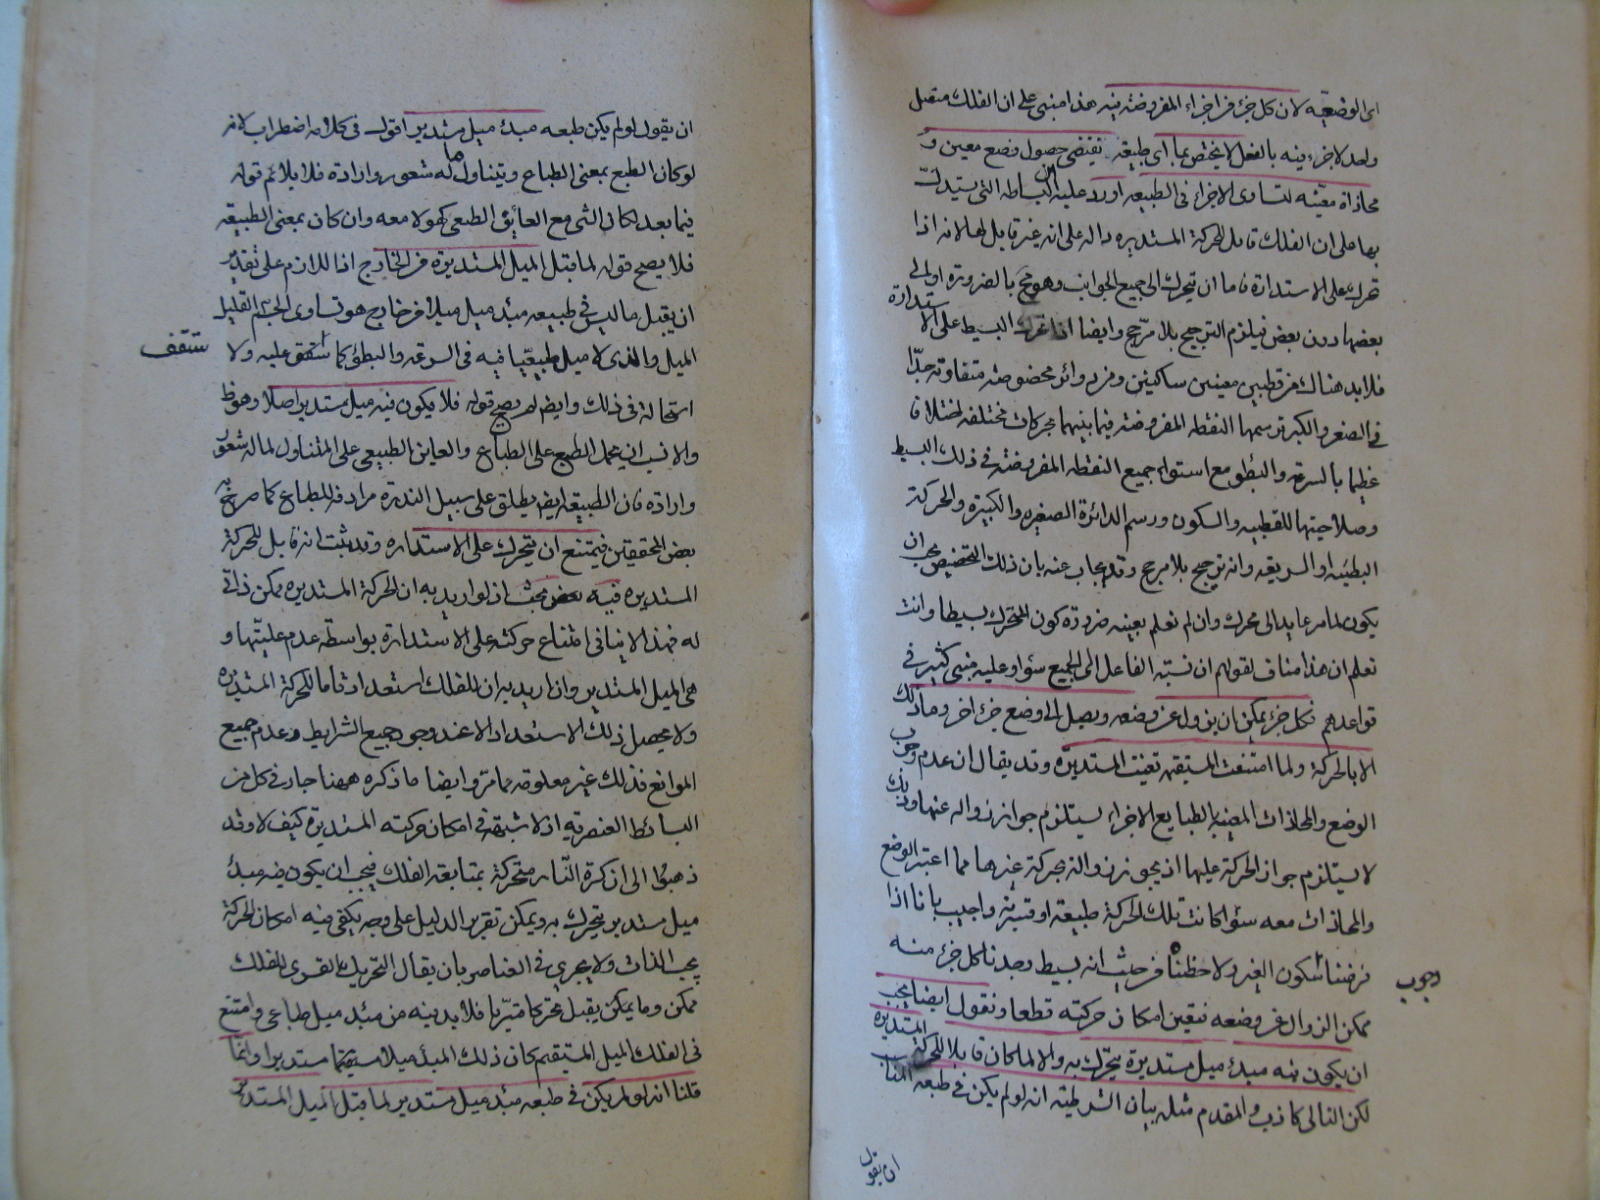 اى الوضعيه لان كل جزء من اجزاء المفروضة فيه هذا مبنى على ان الفلك متصل
واحد لا جزء فيه بالفعل لا يختص بما اى طبيعة تقتضى حصول وضع معين و
محاذاة معينه لتساوى الاجزاء فى الطبيعه اورد عليه ان البساطه التى يستدل
بها على ان الفلك قابل للحركة المستديره داله على انه غير قابل لها لانه اذا
تحرك على الاستدارة فاما ان يتحرك الى جميع الجوانب وهو مح بالضرورة او الى
بعضها دون بعض فيلزم الترجيح بلا مرجح وايضا اذا تحرك البسيط على الاستدارة
فلا بد هناك من قطبين معينين ساكنين ومن دوائر مخصوصة متفاوتة جدا
فى الصغر والكبر ترسمها النقطه المفروضة فيما بينهما بحركات مختلفه اختلافا
عظيما بالسرعة والبطؤ مع استواء جميع النقطه المفروضة فى ذلك البسيط
وصلاحيتها للقطبيه والسكون ورسم الدائرة الصغيره والكبيرة والحركة
البطيئه او السريعه وانه ترجيح بلا مرجح وقد يجاب عنه بان ذلك التخصيص يجب ان
يكون لامر عايد الى محركه وان لم نعلم بعينه ضرورة كون المتحرك بسيطا وانت
تعلم ان هذا مناف لقولهم ان نسبة الفاعل الى الجميع سواء وعليه مبنى كثير فى
قواعدهم فكل جزء يمكن ان يزول عن وضعه ويصل الى وضع جزء اخر وما ذلك
الا بالحركة ولما امتنعت المستقيمه تعينت المستديرة وقد يقال ان عدم وجوب
الوضع والمحاذات المعينه لطبايع الاجزاء يستلزم جواز زواله عنها وذلك
لا يستلزم جواز الحركة عليها اذ يجوز زواله بحركة غيرها مما اعتبر الوضع
والمحاذات معه سواء كانت تلك الحركة طبيعة او قسرية واجيب بانا اذا
فرضنا سكون الغير ولاحظناه من حيث انه بسيط وجدنا كل جزء منه
وجوب
ممكن الزوال عن وضعه فتعين امكان حركته قطعا ونقول ايضا يجب
ان يكون فيه مبدء ميل مستديرة يتحرك به والا لما كان قابلا للحركة المستديرة
لكن التالى كاذب والمقدم مثله بيان الشرطية انه لو لم يكن فى طبعه المناسب
ان يقول
ان يقول لو لم يكن طبعه مبدء ميل مستدير اقول فى كلامه اضطراب لانه
لو كان الطبع بمعنى الطباع ويتناول ما له شعور وارادة فلا يلائم قوله
فيما بعد لكان الشى مع العايق الطبعى كهو لا معه وان كان بمعنى الطبيعه
فلا يصح قوله لما قبل الميل المستديرة من الخارج اذ اللازم على تقدير
ان يقبل ما ليس فى طبيعه مبدء ميل ميلا من خارج هو تساوى الجسم القليل
ستقف
الميل والذى لا ميل طبيعيا فيه فى السرعه والبطؤ كما ستقف عليه ولا
استحالة فى ذلك وايضا لم يصح قوله فلا يكون فيه ميل مستدير اصلا وهو ظ
والانسب ان يحمل الطبع على الطباع والعايق الطبيعى على المتناول لما له شعور
وارادة فان الطبيعه ايضا يطلق على سبيل الندرة مرادفه للطباع كما صرح به
بعض المحققين فيمتنع ان يتحرك على الاستداره وقد ثبت انه قابل للحركة
المستديره فيه بحث اذ لو اريد به ان الحركة المستديره ممكن ذاتى
له فهذا لا ينافى امتناع حركته على الاستدارة بواسطه عدم علتها و
هى الميل المستدير وان اريد به ان للفلك استعدادا تاما للحركة المستديره
ولا يحصل ذلك الاستعداد الا عند وجود جميع الشرايط وعدم جميع
الموانع فذلك غير معلوم مما مر وايضا ما ذكره ههنا جار فى كل من
البسائط العنصريه اذ لا شبهة فى امكان حركته المستديرة كيف لا وقد
ذهبوا الى ان كرة النار متحركة بمتابعة الفلك فيجب ان يكون فيه مبدء
ميل مستدير يتحرك به ويمكن تقرير الدليل على وجه يكفى فيه امكان الحركة
بحسب الذات ولا يجرى فى العناصر بان يقال التحريك القسرى للفلك
ممكن وما يمكن يقبل تحريكا قسريا فلا بد فيه من مبدء ميل طباعى وامتنع
فى الفلك الميل المستقيم كان ذلك المبدء ميلا مستديرا وانما
قلنا انه لو لم يكن فى طبعه مبدء ميل مستدير لما قبل الميل المستدير